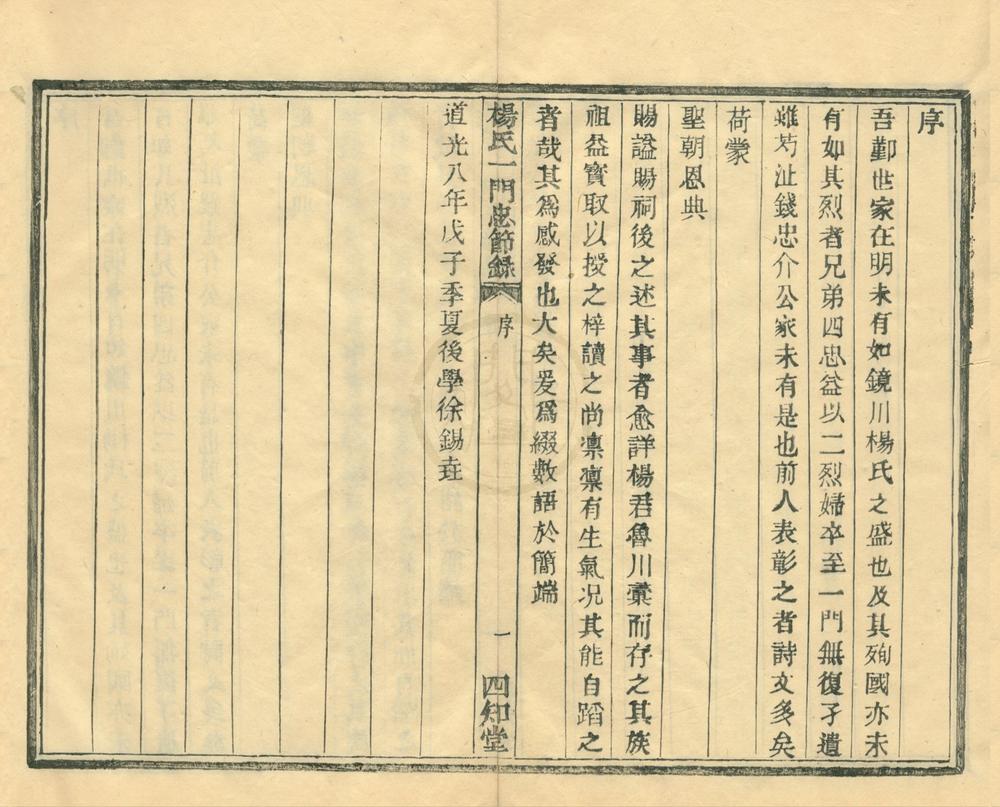 序
吾鄞世家在明未有如鏡川楊氏之盛也及其殉國亦未
有如其烈者兄弟四忠益以二烈婦卒至一門無復孑遺
雖芍沚錢忠介公家未有是也前人表彰之者詩文多矣
荷蒙
聖朝恩典
賜諡賜祠後之述其事者愈詳楊君魯川彙而存之其族
祖益寳取以授之梓讀之尚凛凛有生氣况其能自蹈之
者哉其爲感發也大矣爰爲綴數語於簡端
楊氏一門忠節錄 序 一 四知堂
道光八年戊子季夏後學徐錫垚